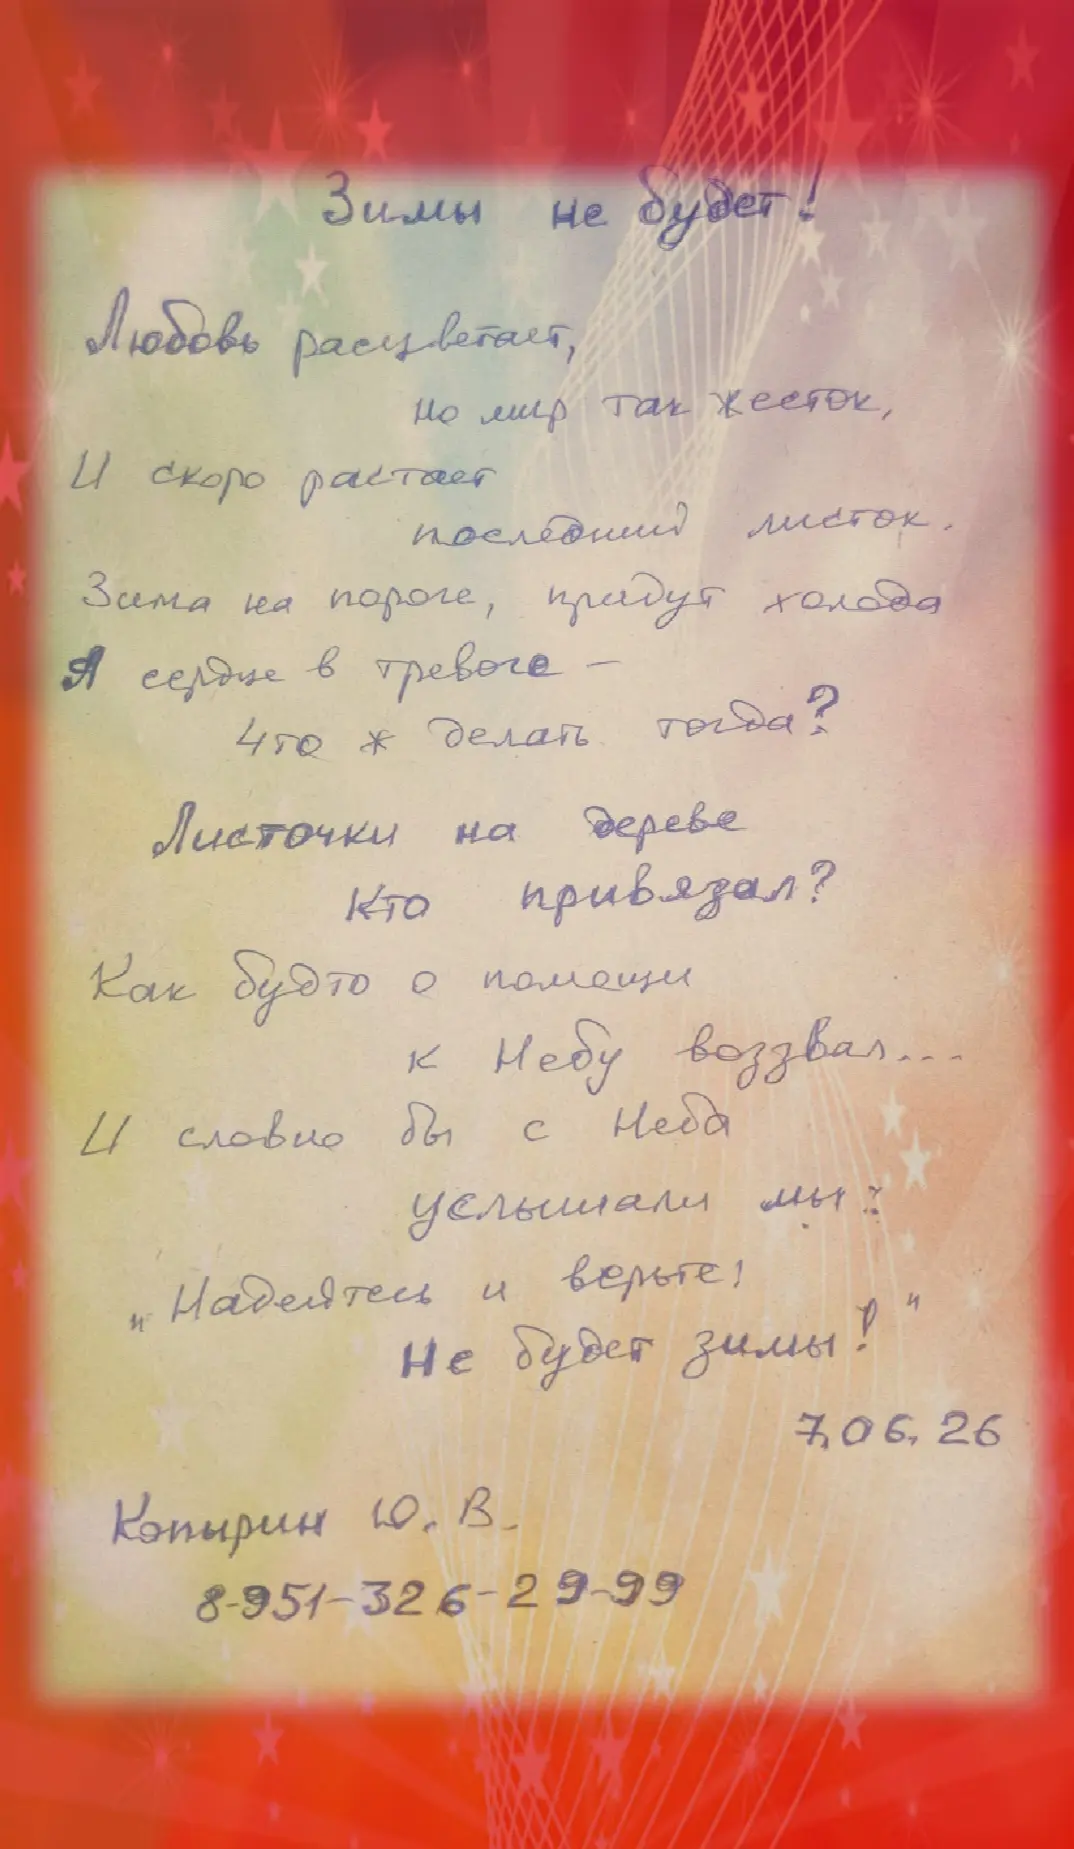 Зимы не будет!
Любовь расцветает,
но мир так жесток,
И скоро растает
последний листок.
Зима на пороге, придут холода
А сердце в тревоге –
Что ж делать тогда?
Листочки на дереве
Кто привязал?
Как будто о помощи
к Небу воззвал...
И словно бы с Неба
услышали мы:
"Надейтесь и верьте!
Не будет зимы!"
7.06.26
Копырин Ю.В.
8-951-326-29-99